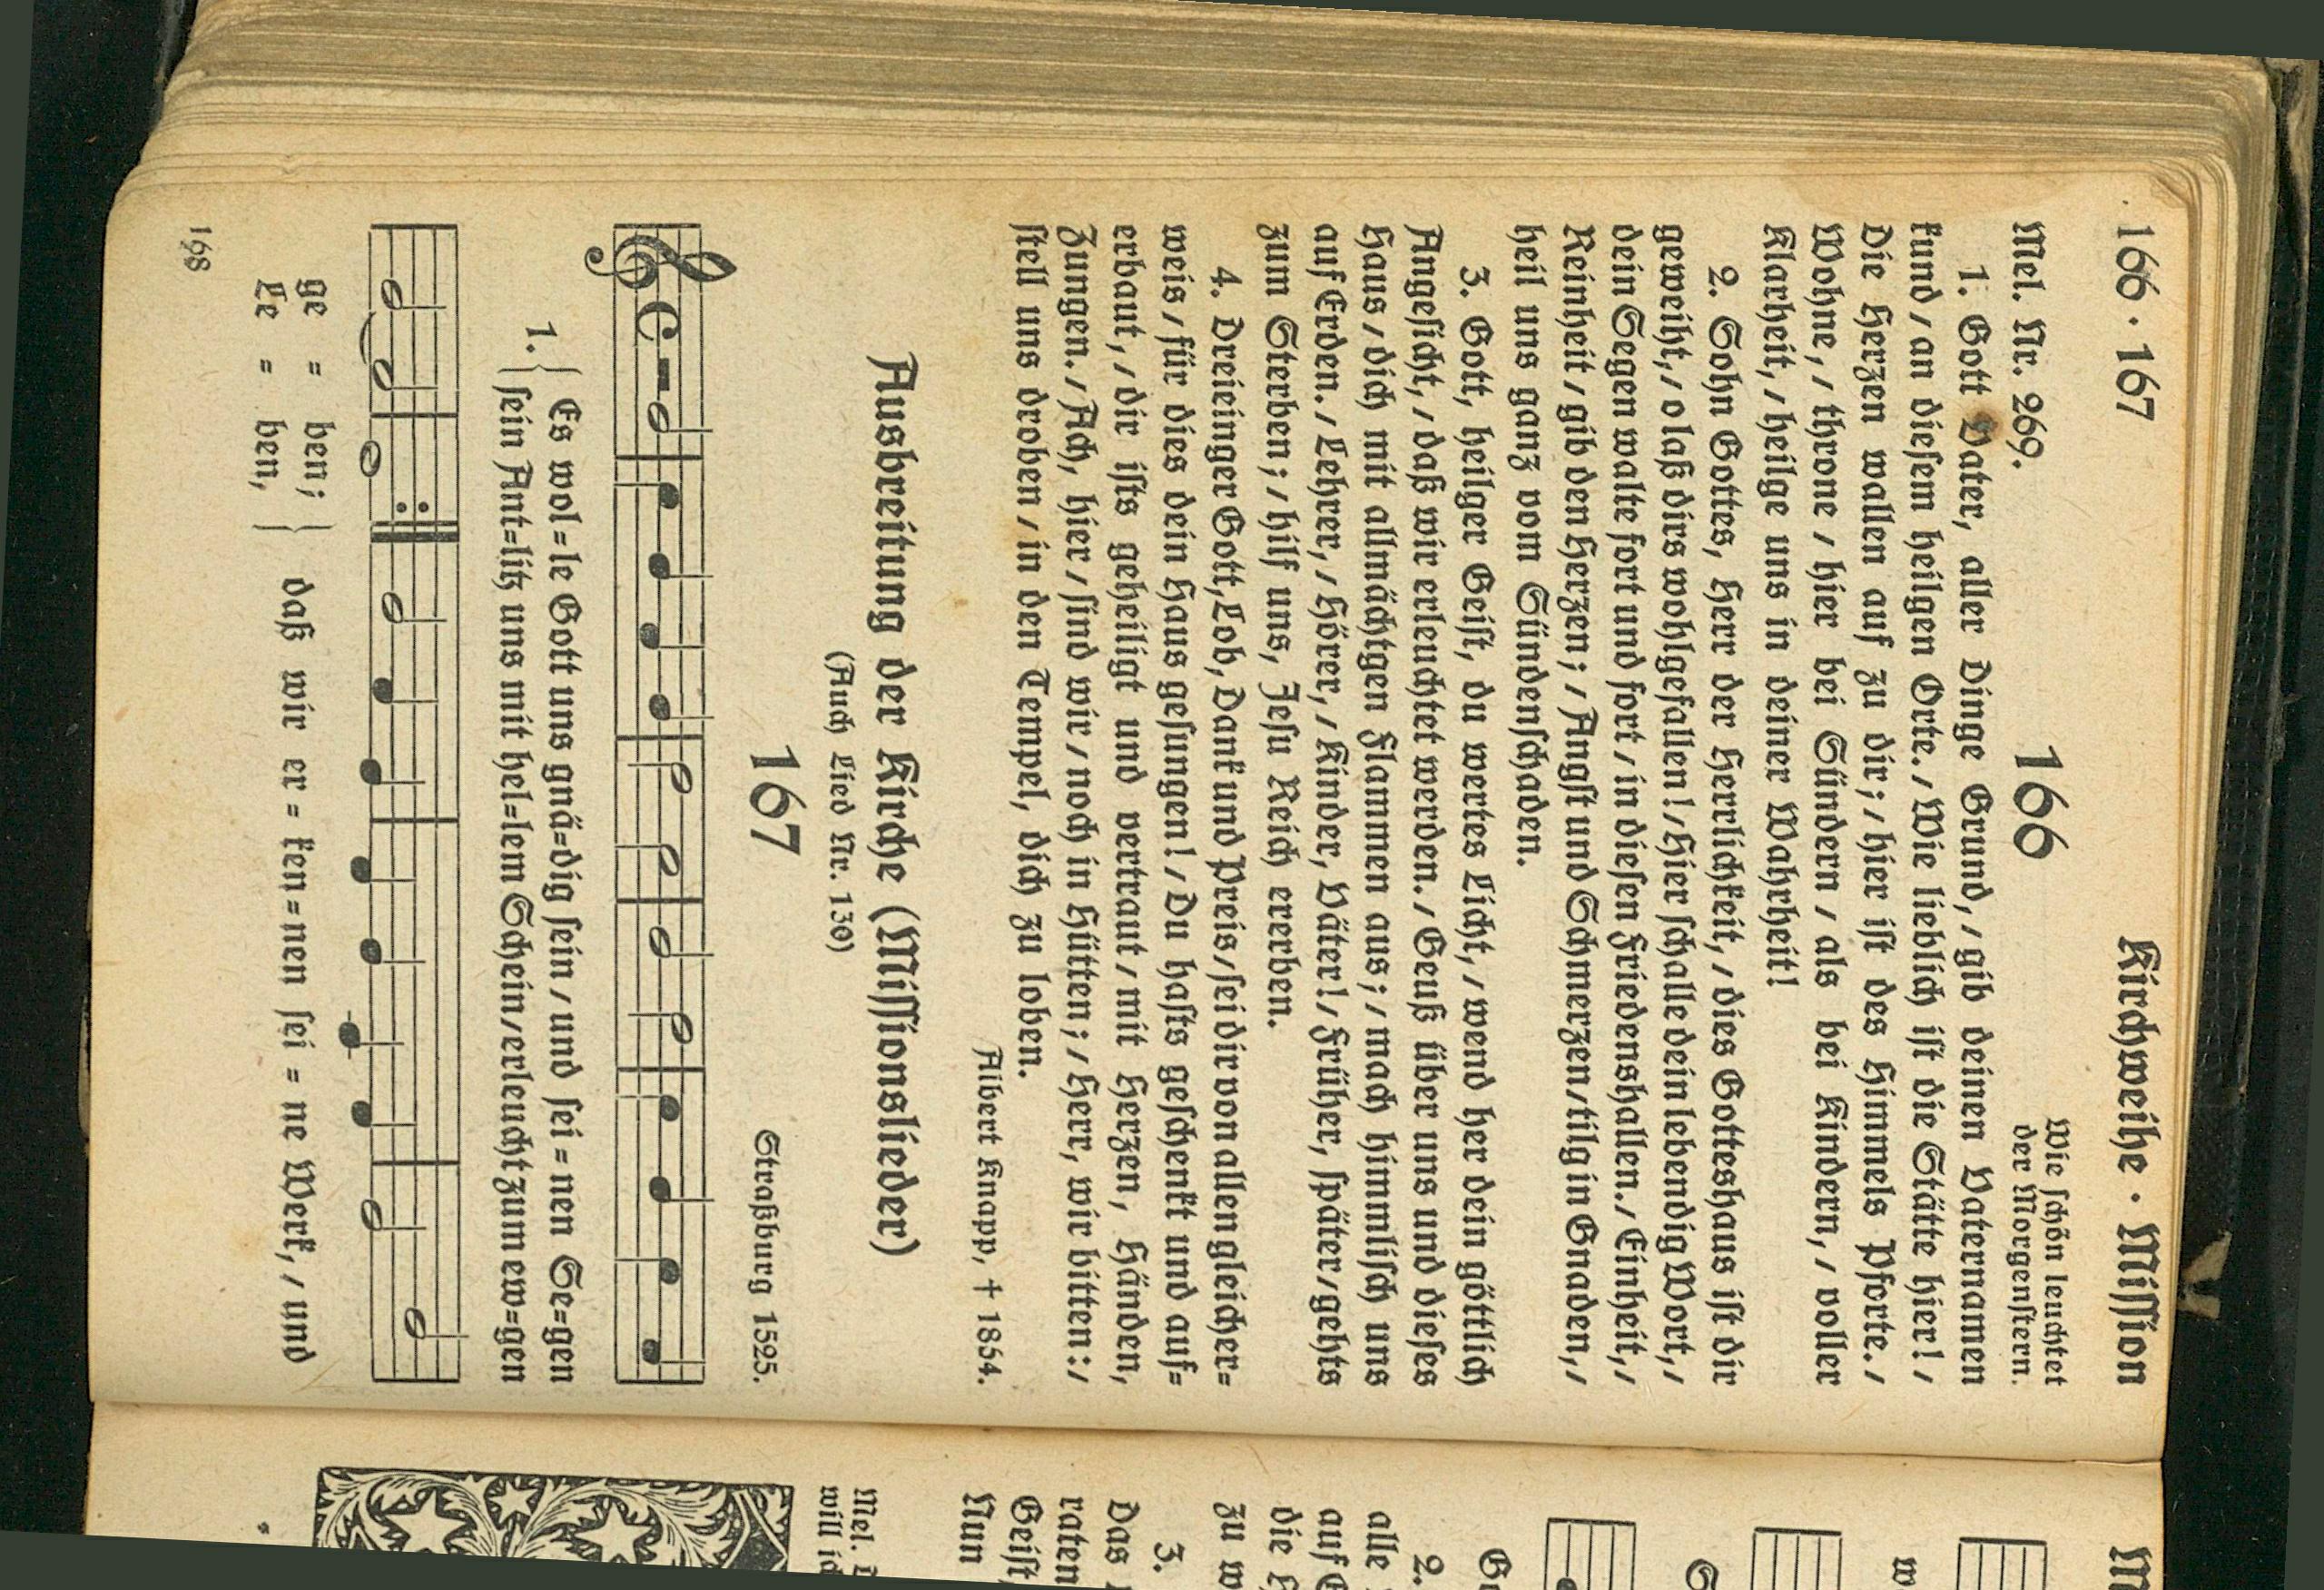 166 · 167
Kirchweihe · Mission
Mel. Nr. 269.
166
Wie schön leuchtet
der Morgenstern.
1. Gott Vater, aller Dinge Grund, / gib deinen Vaternamen
kund / an diesem heilgen Orte. / Wie lieblich ist die Stätte hier! /
Die Herzen wallen auf zu dir; / hier ist des Himmels Pforte. /
Wohne, / throne / hier bei Sündern / als bei Kindern, / voller
Klarheit, / heilge uns in deiner Wahrheit!
2. Sohn Gottes, Herr der Herrlichkeit, / dies Gotteshaus ist dir
geweiht, / o laß dirs wohlgefallen! / Hier schalle dein lebendig Wort, /
dein Segen walte fort und fort / in diesen Friedenshallen. / Einheit, /
Reinheit / gib den Herzen; / Angst und Schmerzen / tilg in Gnaden, /
heil uns ganz vom Sündenschaden.
3. Gott, heilger Geist, du wertes Licht, / wend her dein göttlich
Angesicht, / daß wir erleuchtet werden. / Geuß über uns und dieses
Haus / dich mit allmächtgen Flammen aus; / mach himmlisch uns
auf Erden. / Lehrer, / Hörer, / Kinder, Väter! / Früher, später / gehts
zum Sterben; / hilf uns, Jesu Reich ererben.
4. Dreieinger Gott, Lob, Dank und Preis / sei dir von allen gleicher=
weis / für dies dein Haus gesungen! / Du hasts geschenkt und auf=
erbaut, / dir ists geheiligt und vertraut / mit Herzen, Händen,
Zungen. / Ach, hier / sind wir / noch in Hütten; / Herr, wir bitten: /
stell uns droben / in den Tempel, dich zu loben.
Albert Knapp, † 1864.
Ausbreitung der Kirche (Missionslieder)
(Auch Lied Nr. 130)
167
Straßburg 1525.
1. { Es wol=le Gott uns gnä=dig sein / und sei = nen Se=gen
{ sein Ant=litz uns mit hel=lem Schein / erleucht zum ew=gen
ge = ben; } daß wir er = ken=nen sei = ne Werk, / und
Le = ben, }
168
Mel.
will ich
Nun
Geist
raten
Das
3.
zu w
die H
auf E
alle
2.